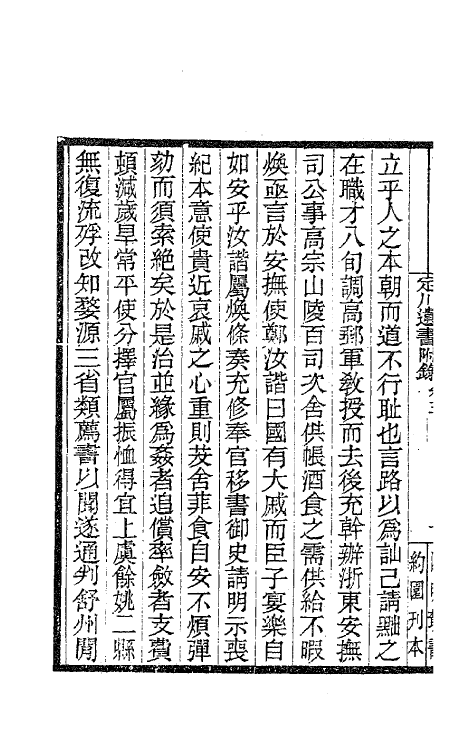 立乎人之本朝而道不行耻也言路以爲訕己請黜之
在職才八旬調高郵軍教授而去後充幹辦浙東安撫
司公事高宗山陵百司次舍供帳酒食之需供給不暇
煥亟言於安撫使鄭汝諧曰國有大戚而臣子宴樂自
如安乎汝諧屬煥條奏充修奉官移書御史請明示喪
紀本意使貴近哀戚之心重則芰舍菲食自安不煩彈
劾而須索絶矣於是治並緣爲姦者追償率斂者支費
頓減歲旱常平使分擇官屬振恤得宜上虞餘姚二縣
無復流殍改知婺源三省類薦書以聞遂通判舒州閒
定川遺書附錄
約園刊本